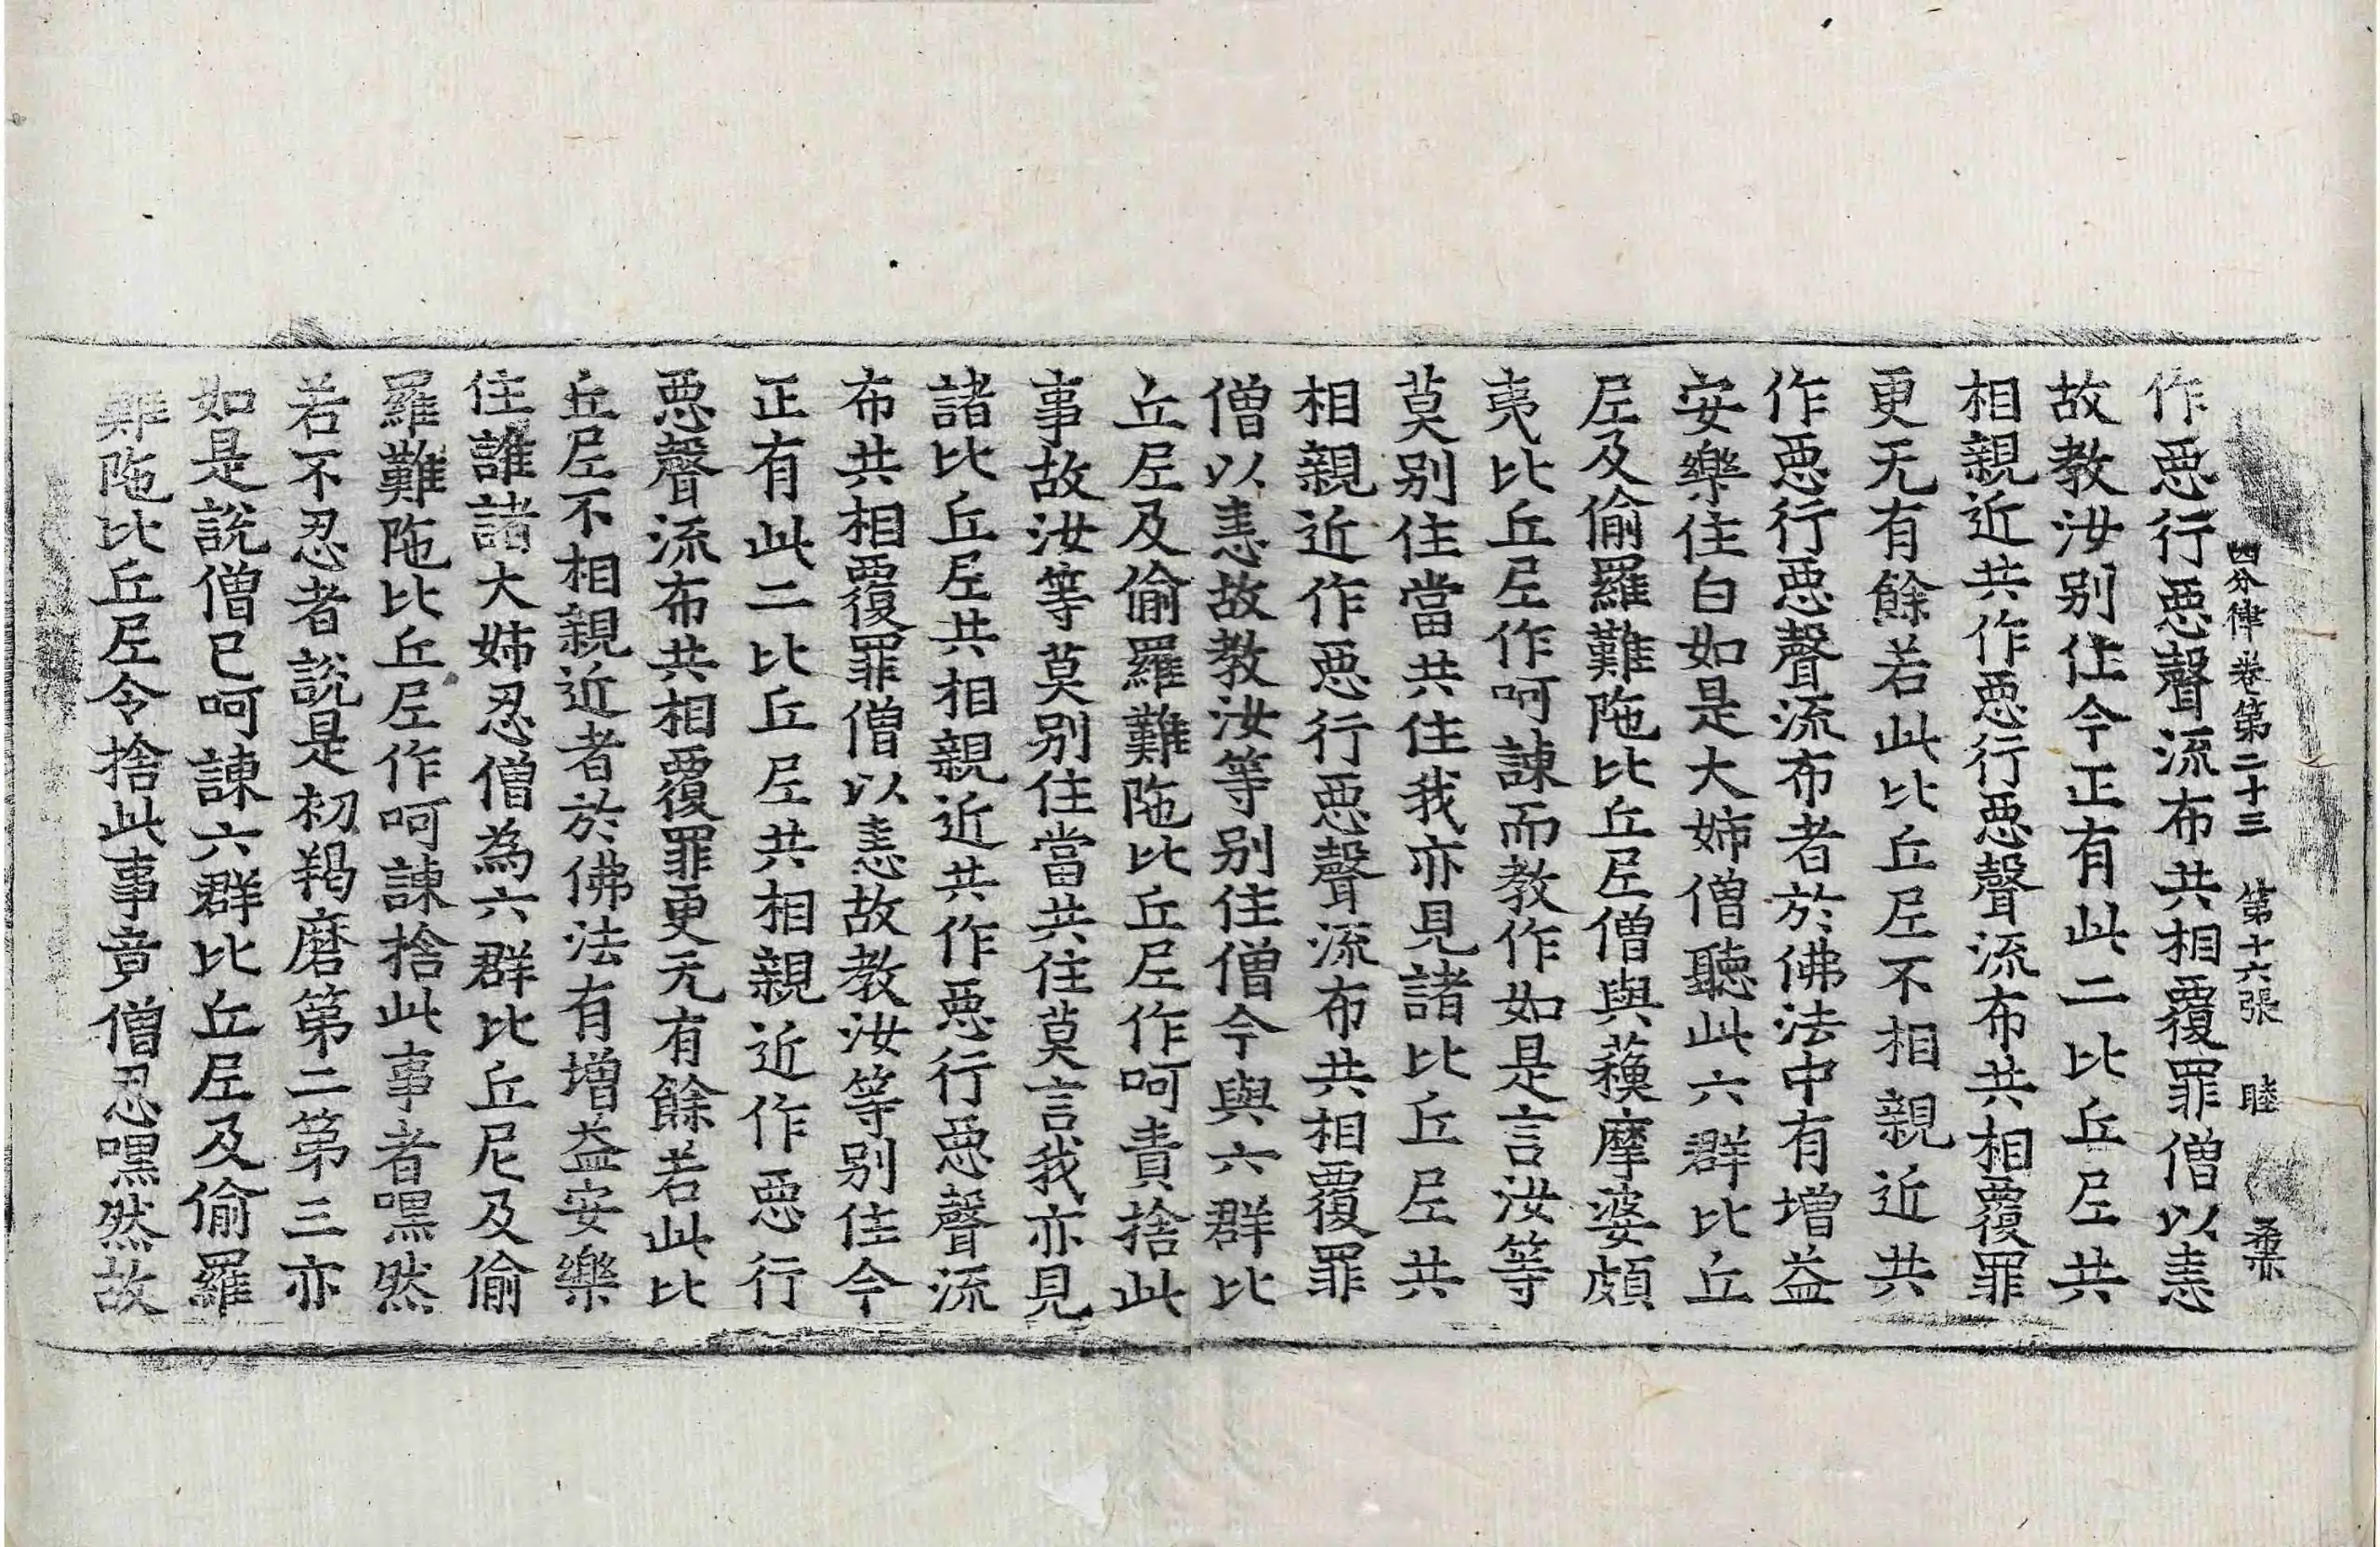 四分律卷第二十三　第十六張　睦
作惡行惡聲流布共相覆罪僧以恚
故教汝別住今正有此二比丘尼共
相親近共作惡行惡聲流布共相覆罪
更无有餘若此比丘尼不相親近共
作惡行惡聲流布者於佛法中有增益
安樂住白如是大姊僧聽此六群比丘
尼及偷羅難陁比丘尼僧與蘓摩婆頗
夷比丘尼作呵諫而教作如是言汝等
莫別住當共住我亦見諸比丘尼共
相親近作惡行惡聲流布共相覆罪
僧以恚故教汝等別住僧今與六群比
丘尼及偷羅難陁比丘尼作呵責捨此
事故汝等莫別住當共住莫言我亦見
諸比丘尼共相親近共作惡行惡聲流
布共相覆罪僧以恚故教汝等別住今
正有此二比丘尼共相親近作惡行
惡聲流布共相覆罪更无有餘若此比
丘尼不相親近者於佛法有增益安樂
住誰諸大姊忍僧為六群比丘尼及偷
羅難陁比丘尼作呵諫捨此事者嘿然
若不忍者說是初羯磨第二第三亦
如是說僧已呵諫六群比丘尼及偷羅
難陁比丘尼令捨此事竟僧忍嘿然故